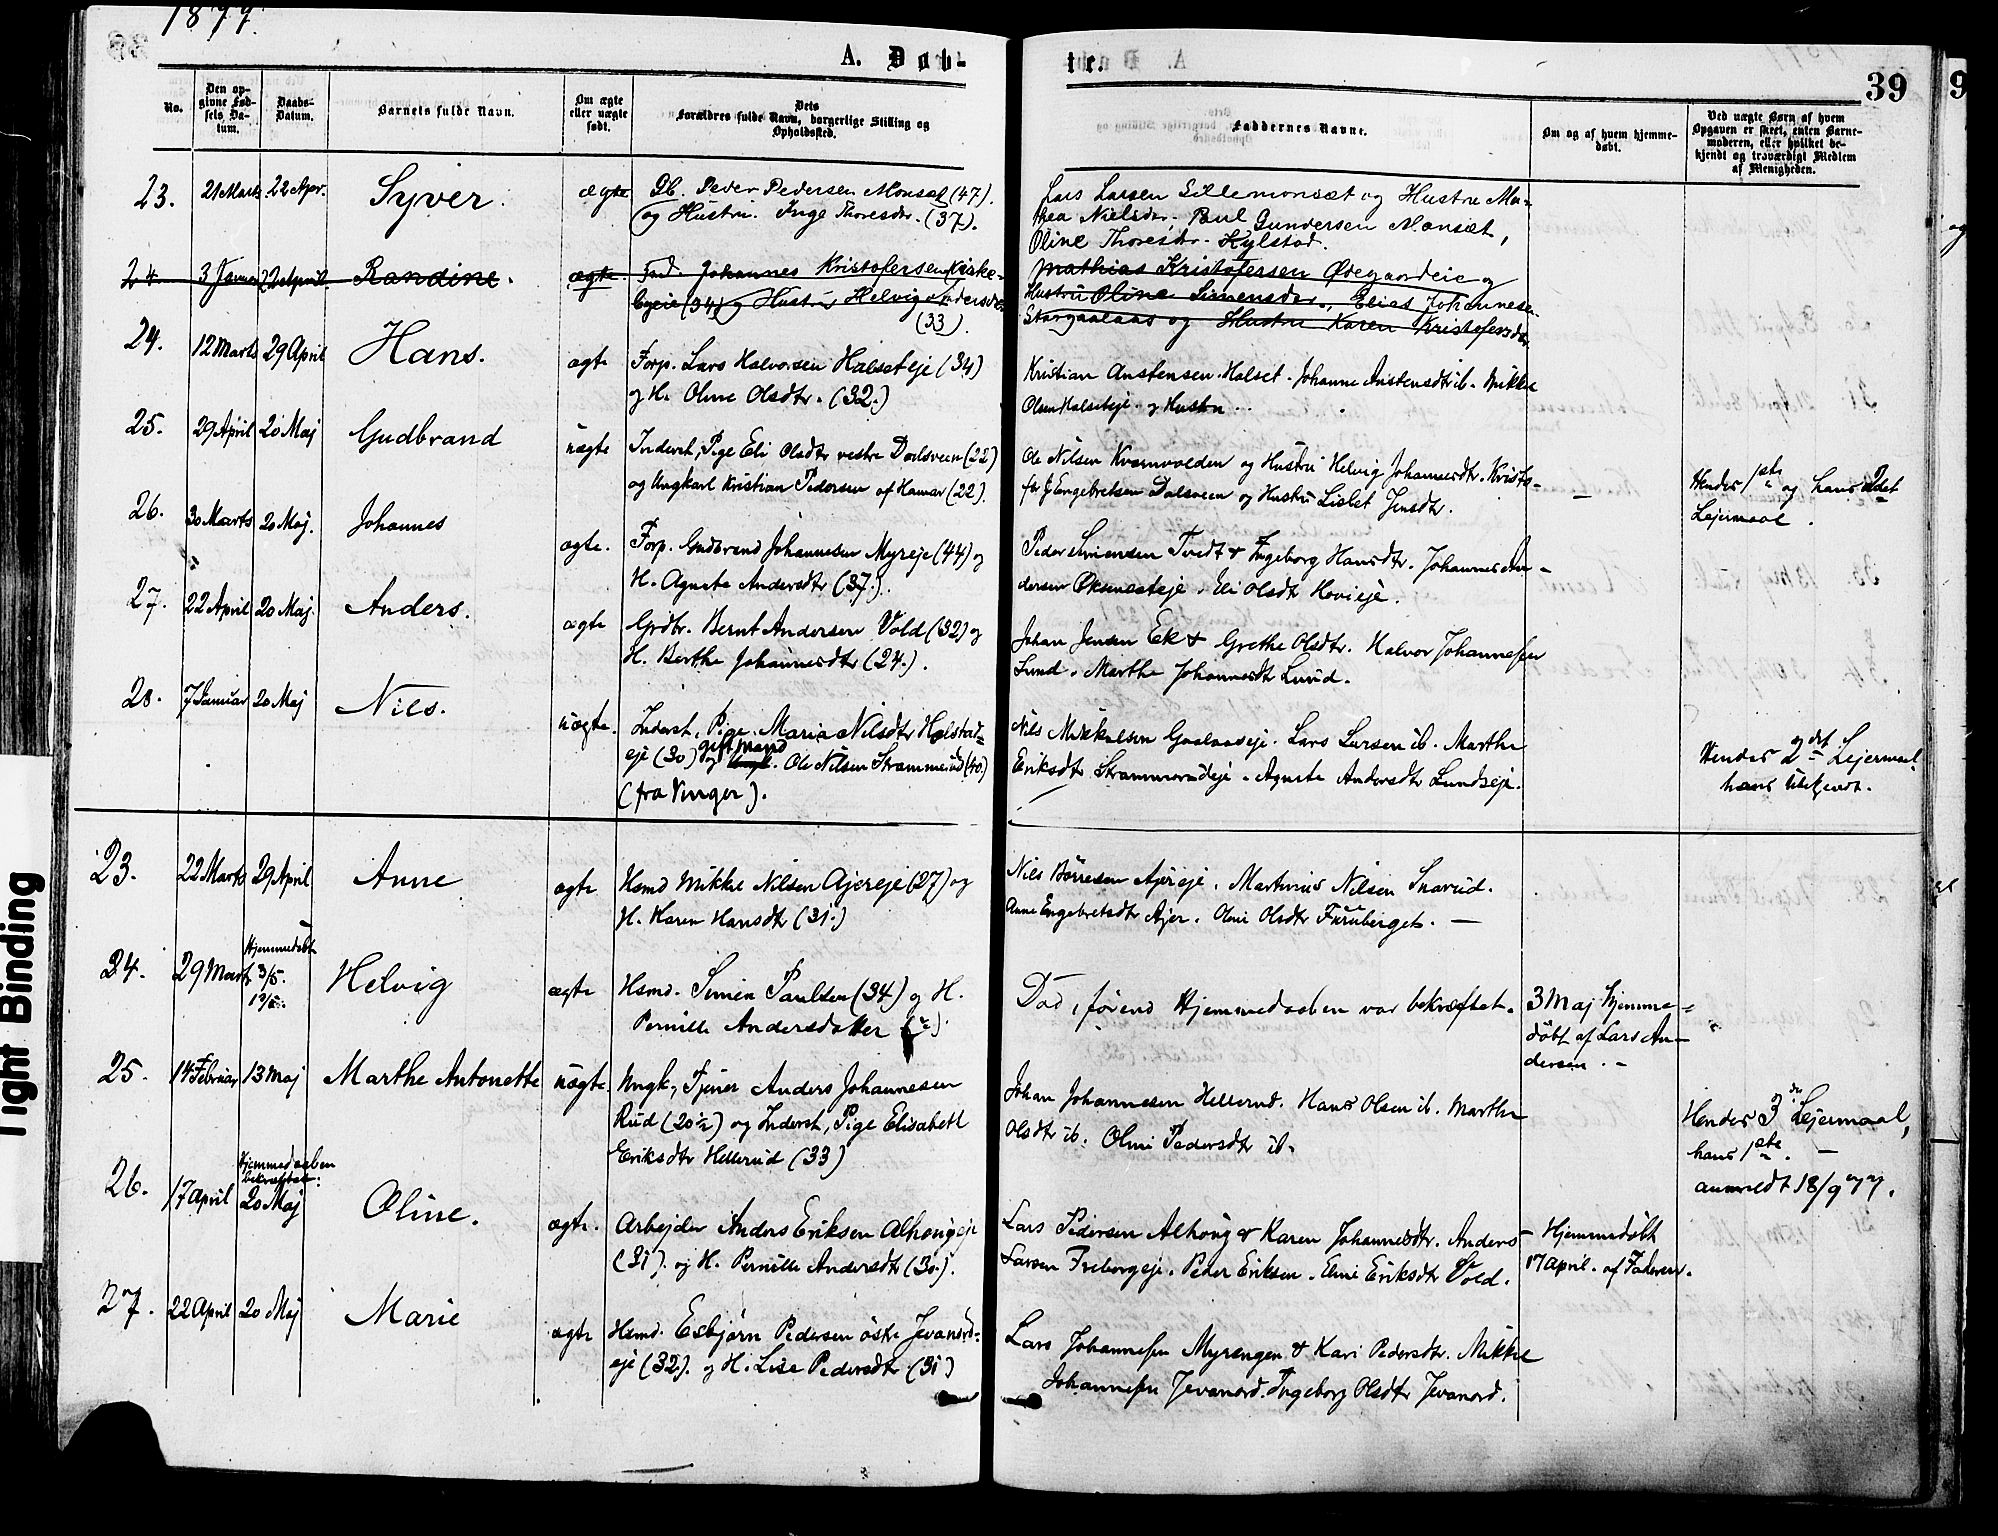 1877.
A. Døb-
te.
39
No.
Den op-
givne Fød-
sels Da-
tum.
Daabs-
Datum.
Barnets fulde Navn.
Om ægte
eller uægte
født.
Dets
Forældres fulde Navn, borgerlige Stilling og
Opholdssted.
Faddernes Navne.
Om og af hvem hjemme-
døbt.
Ved uægte Børn af hvem
Opgaven er skeet, enten Barne-
moderen, eller hvilket be-
kjendt og troværdigt Medlem
af Menigheden.
23. 21 Marts 22 Apr. Syver. ægte
Peder Pedersen Monsæt (47).
og Hustru. Inge Thoresdr. (37).
Lars Larsen Sillemonsæt og Hustru Ma-
thea Nielsdr. Paul Gundersen Monsæt,
Oline Thoresdr. Kylstad.
24. 3 Januar 22 April Randine. ægte.
Johannes Kristofersen Kirke-
byeie (34) og Hustru Helvig Andersdr
(33).
Mathias Kristofersen Øvegaardeie og
Hustru Oline Simensdr., Elias Johannesen
Storgaalaas og Hustru Karen Kristofersdr.
24. 12 Marts 29 April Hans. ægte
Forp. Lars Halvorsen Halseteje (34)
og H. Oline Olsdtr. (32.)
Kristian Austensen Halset. Johanne Austensdtr ib. Mikkel
Olsen Halseteje og Hustru
25. 29 April 20 Maj Gudbrand uægte
Inderst, Pige Eli Olsdtr vestre Dalsveen (22)
og Ungkarl Kristian Pedersen af Hamar (22).
Ole Nilsen Kvernvolden og Hustru Helvig Johannesdtr. Kristo-
fer Engebretsen Dalsveen og Hustru Lisbet Jensdtr.
Hendes 1ste og hans 2det
Lejermaal.
26. 30 Marts 20 Maj. Johannes ægte.
Forp. Gudbrand Johannesen Myreje (44) og
H. Agnete Andersdtr (37.).
Peder Simensen Tvedt & Ingeborg Hansdtr. Johannes An-
dersen Øksnesteje. Eli Olsdtr Hovieje.
27. 22 April 20 Maj. Anders. ægte
Grdbr. Bernt Andersen Vold (32) og
H. Berthe Johannesdtr (24.).
Johan Jensen Ek & Grethe Olsdtr. Halvor Johannesen
Lund. Marthe Johannesdtr Lund.
28. 7 Januar 20 Maj Nils. uægte.
Inderst, Pige Maria Nilsdtr Holstad-
eje (30) og gift Mand Ole Nilsen Strammerud (40.)
(fra Vinger).
Nils Mikkelsen Gaalaaseje. Lars Larsen ib. Marthe
Eriksdtr Strammerudeje. Agnete Andersdtr Lundseje.
Hendes 2det Lejermaal og
hans Ubekjendt.
23. 22 Marts 29 April Anne ægte
Hsmd Mikkel Nilsen Ajereje (27) og
H. Karen Hansdtr (31.)
Nils Børresen Ajereje. Martinus Nilsen Snarud.
Anne Engebretsdtr Ajer. Oline Olsdtr Furuberget. —
24. 29 Marts Hjemmedøbt
3/5. Helvig ægte
Hsmd. Simen Paulsen (34) og H.
Pernille Andersdatter
Død, førend Hjemmedaaben var bekræftet.
3 Maj hjemme-
døbt af Lars An-
dersen. -
25. 14 Februar 13 Maj Marthe Antonette uægte.
Ungk., Tjener Anders Johannesen
Rud (20½) og Inderst, Pige Elisabeth
Eriksdtr Hellerud (33)
Johan Johannesen Hellerud. Hans Olsen ib. Marthe
Olsdtr ib. Oline Pedersdtr ib.
Hendes 3die Lejermaal,
hans 1ste. —
anmeldt 18/9 77.
26. 17 April Hjemmedaaben
bekræftet:
20 Maj Oline. ægte.
Arbejder Anders Eriksen Alhougeje
(31). og H. Pernille Andersdtr (30.).
Lars Pedersen Alhoug & Karen Johannesdtr. Anders
Larsen Freborgeje. Peder Eriksen. Eline Eriksdtr Vold.
Hjemmedøbt
17 April. af Faderen.
27. 22 April 20 Maj Marie ægte
Hsmd. Esbjørn Pedersen østre Jevanord-
eje (32). og H. Lise Pedersdtr. (31)
Lars Johannesen Myrengen & Kari Pedersdtr. Mikkel
Johannesen Jevanord. Ingeborg Olsdtr Jevanord.
Tight Binding